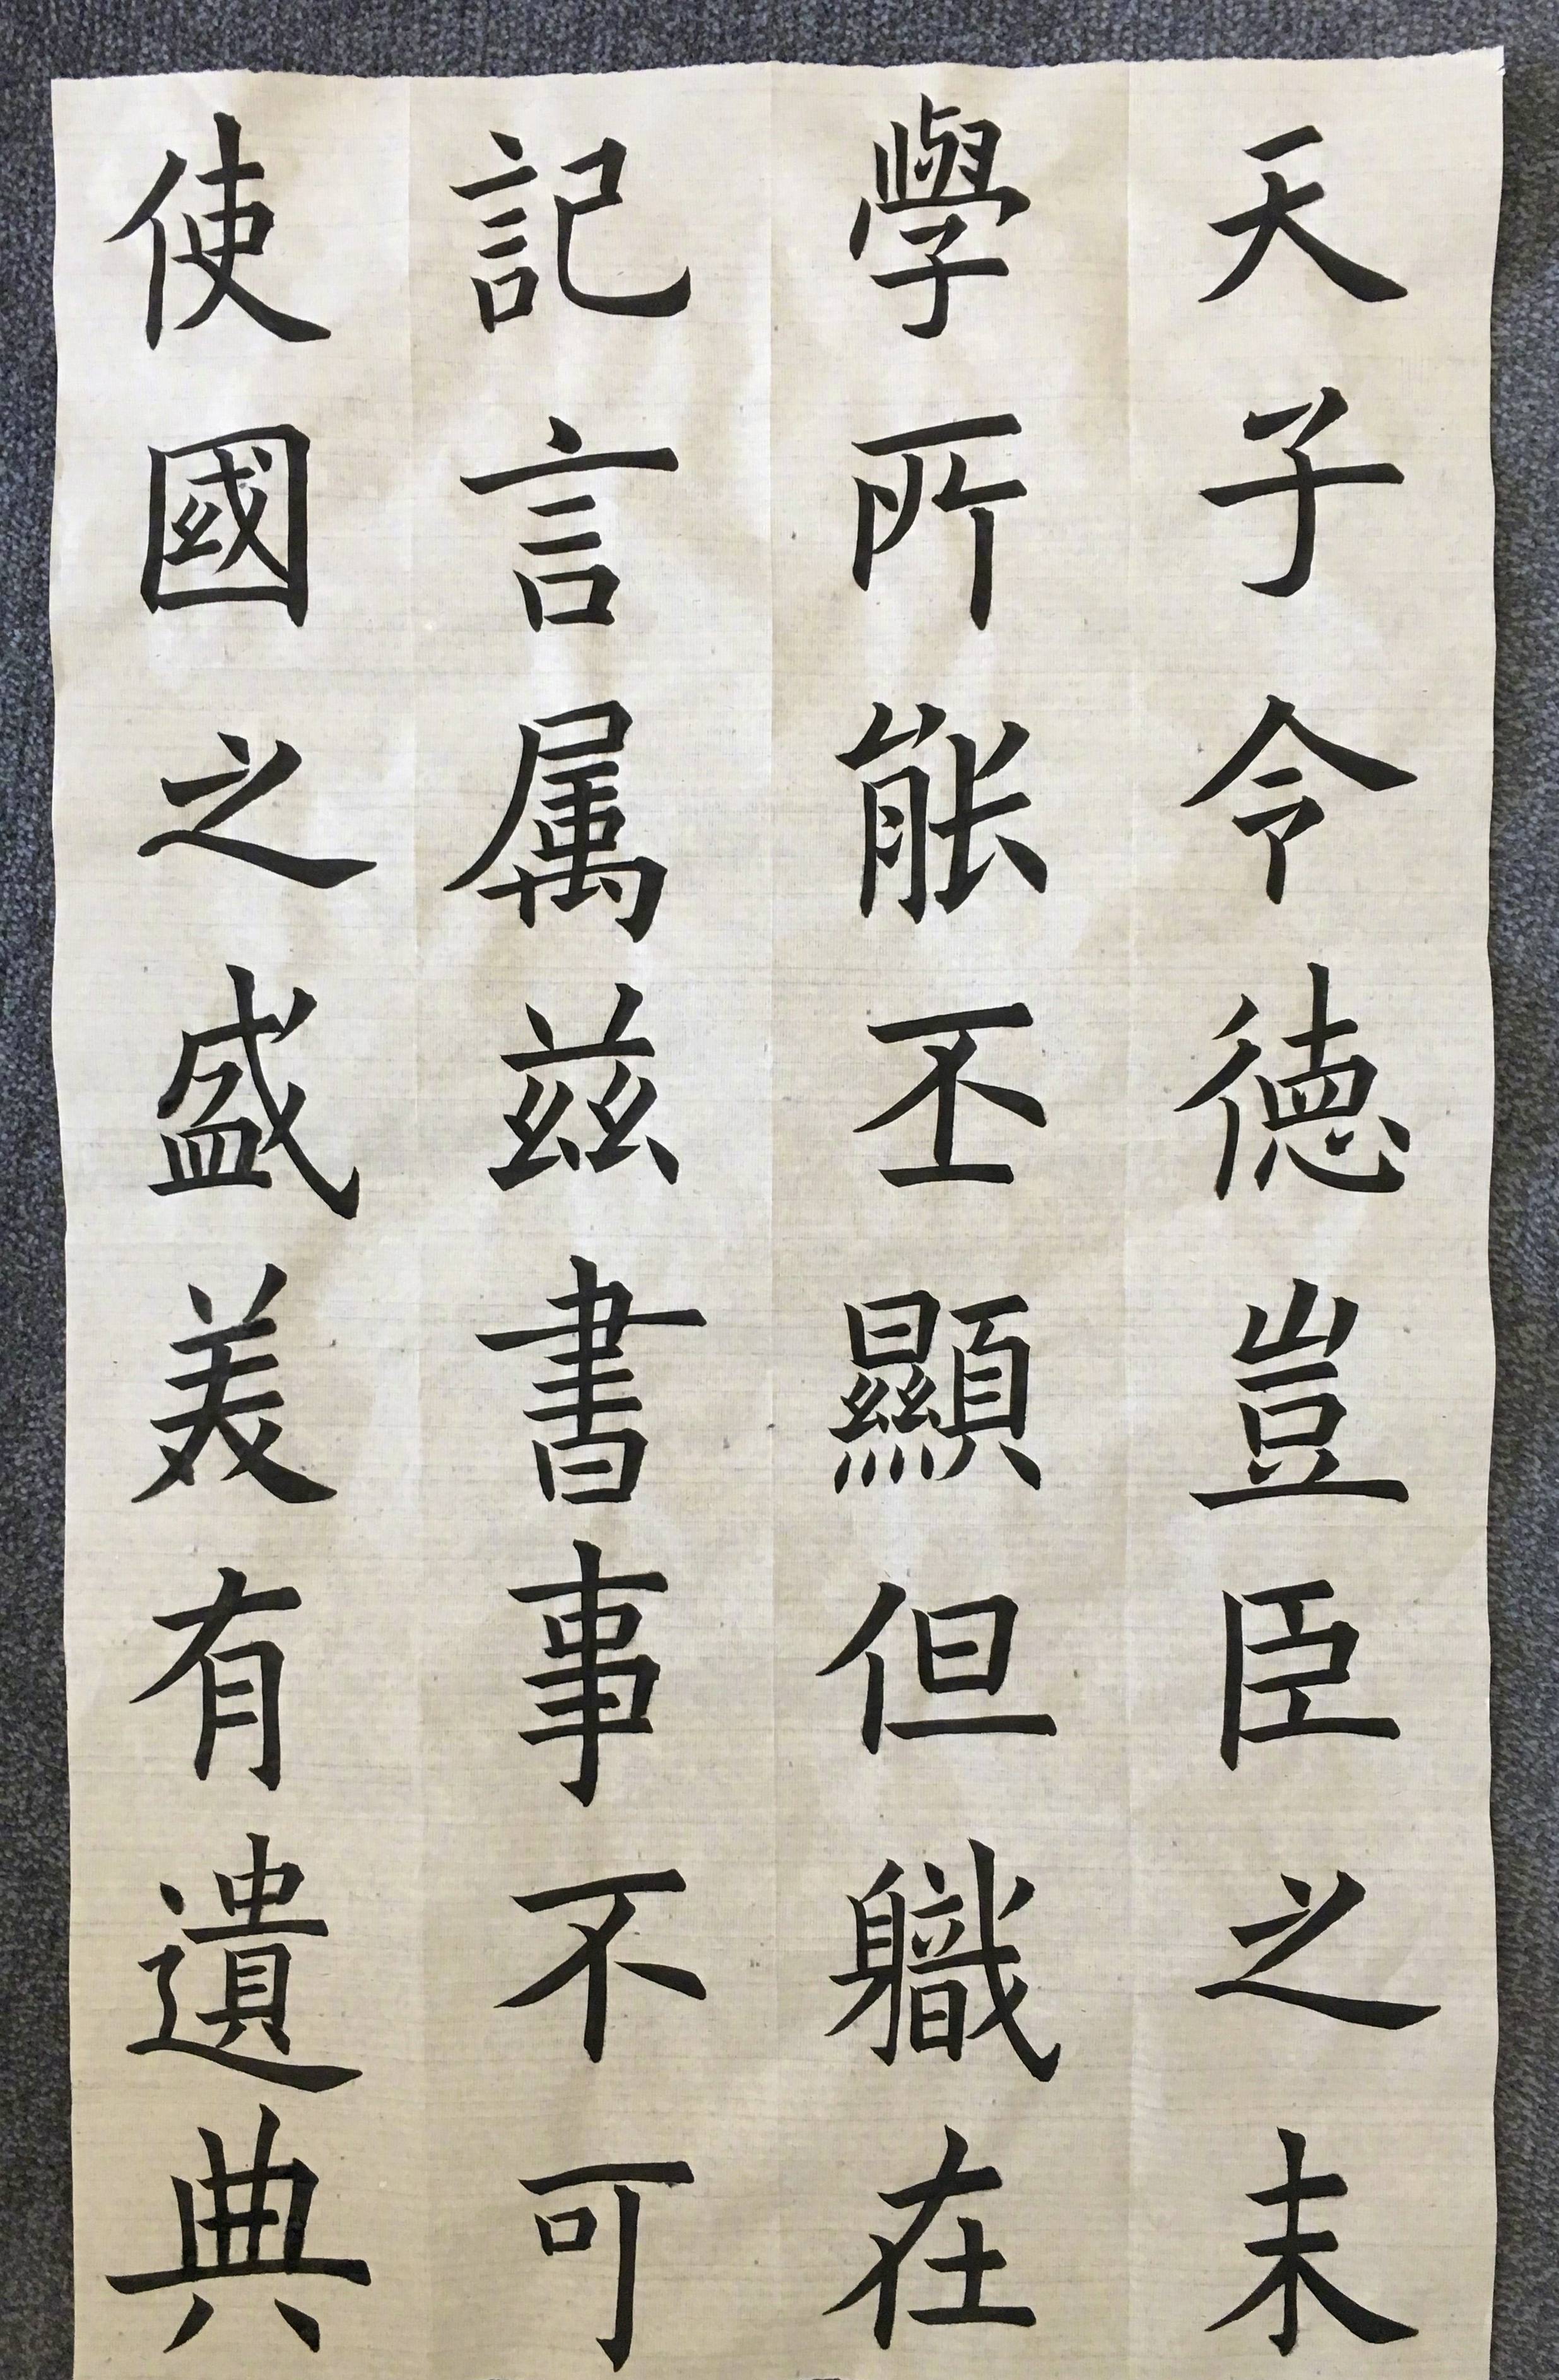 天子令德豈臣之末
學所能丕顯但軄在
記言属兹書事不可
使國之盛美有遺典